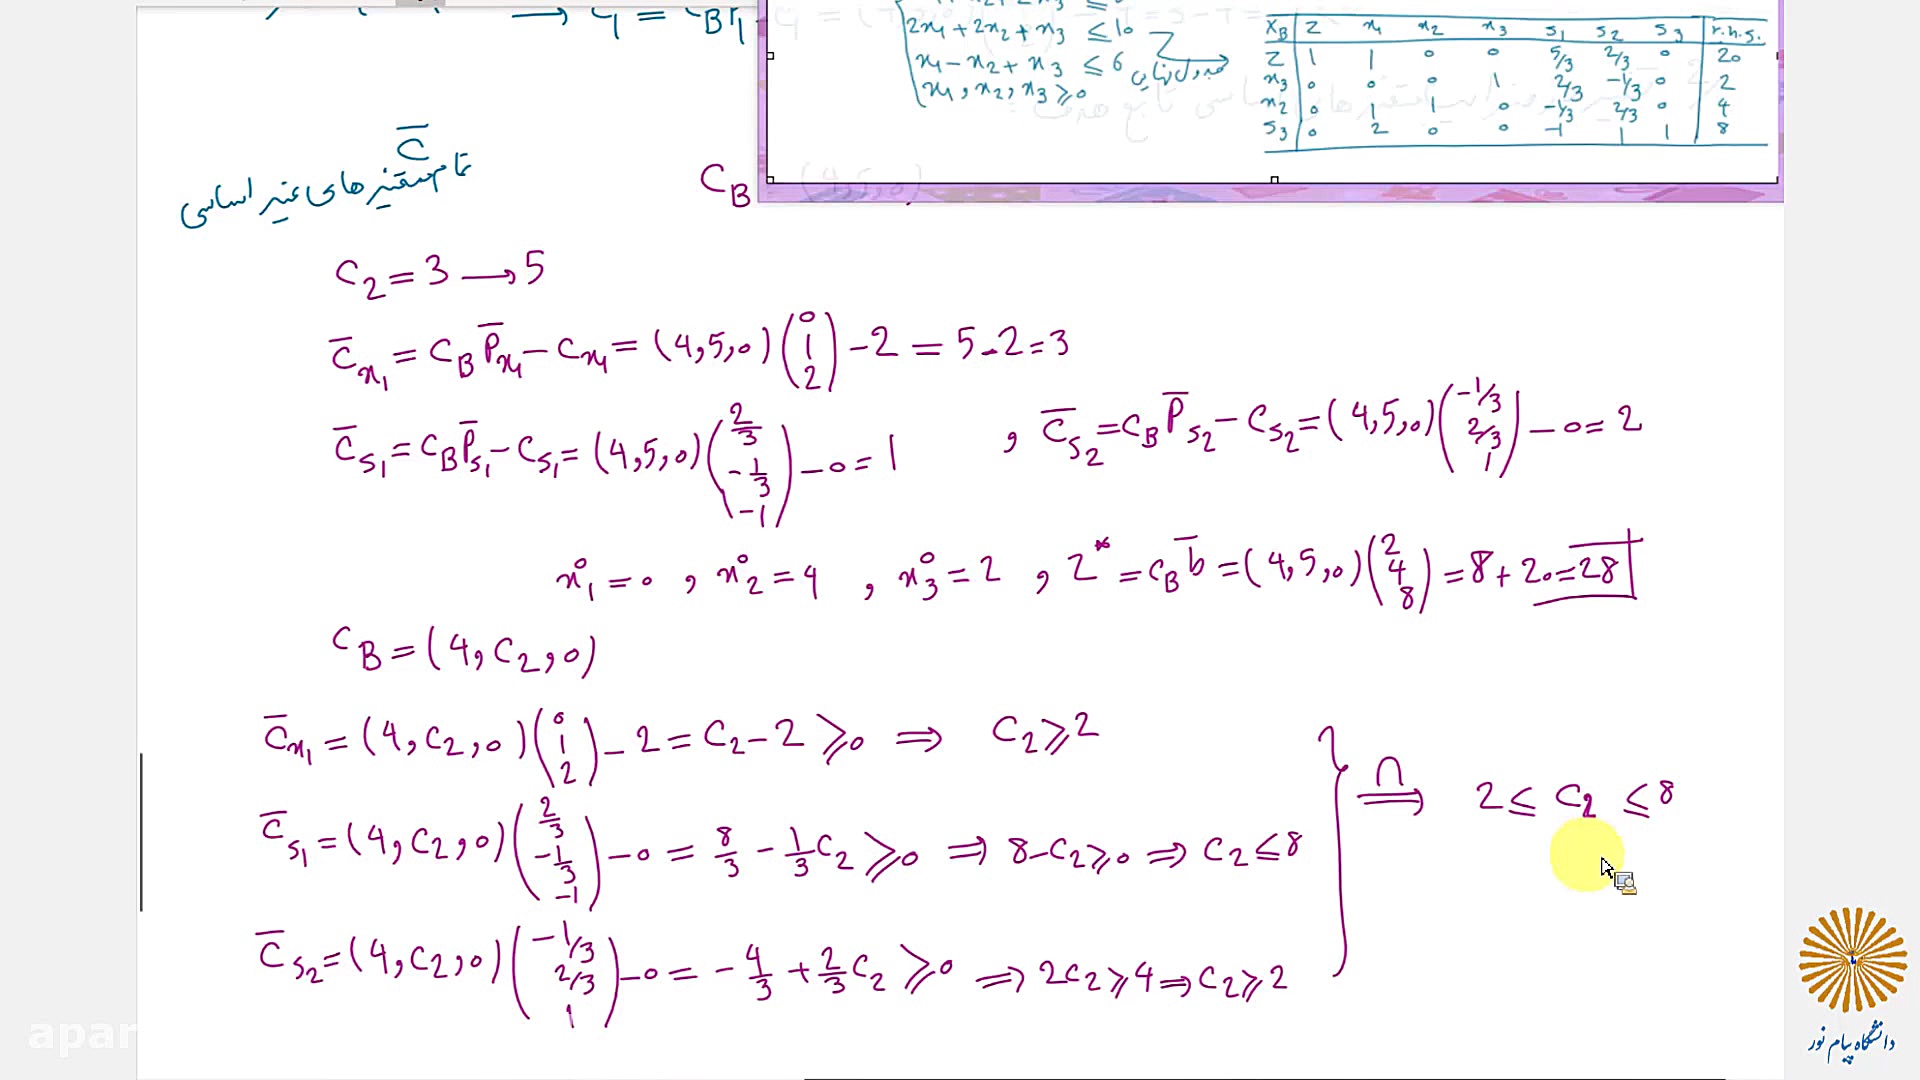 2x₁ + 2x₂ + x₃ ≤ 10
x₁ - x₂ + x₃ ≤ 6
x₁, x₂, x₃ ≥ 0
جدول نهایی
X_B | Z x₁ x₂ x₃ s₁ s₂ s₃ | r.h.s.
Z | 1 1 0 0 5/3 2/3 0 | 20
x₃ | 0 0 0 1 2/3 -1/3 0 | 2
x₂ | 0 1 1 0 -1/3 2/3 0 | 4
s₃ | 0 2 0 0 -1 1 1 | 8
C̄
تمام متغیرهای غیر اساسی
C_B
C₂ = 3 → 5
C̄_x₁ = C_B P̄_x₁ - C_x₁ = (4, 5, 0) (0 1 2) - 2 = 5 - 2 = 3
C̄_s₁ = C_B P̄_s₁ - C_s₁ = (4, 5, 0) (2/3 -1/3 -1) - 0 = 1 , C̄_s₂ = C_B P̄_s₂ - C_s₂ = (4, 5, 0) (-1/3 2/3 1) - 0 = 2
x₁° = 0 , x₂° = 4 , x₃° = 2 , Z* = C_B b̄ = (4, 5, 0) (2 4 8) = 8 + 20 = 28
C_B = (4, C₂, 0)
C̄_x₁ = (4, C₂, 0) (0 1 2) - 2 = C₂ - 2 ≥ 0 ⇒ C₂ ≥ 2
C̄_s₁ = (4, C₂, 0) (2/3 -1/3 -1) - 0 = 8/3 - 1/3 C₂ ≥ 0 ⇒ 8 - C₂ ≥ 0 ⇒ C₂ ≤ 8
C̄_s₂ = (4, C₂, 0) (-1/3 2/3 1) - 0 = -4/3 + 2/3 C₂ ≥ 0 ⇒ 2C₂ ≥ 4 ⇒ C₂ ≥ 2
} ∩ ⇒ 2 ≤ C₂ ≤ 8
apar
دانشگاه پیام نور